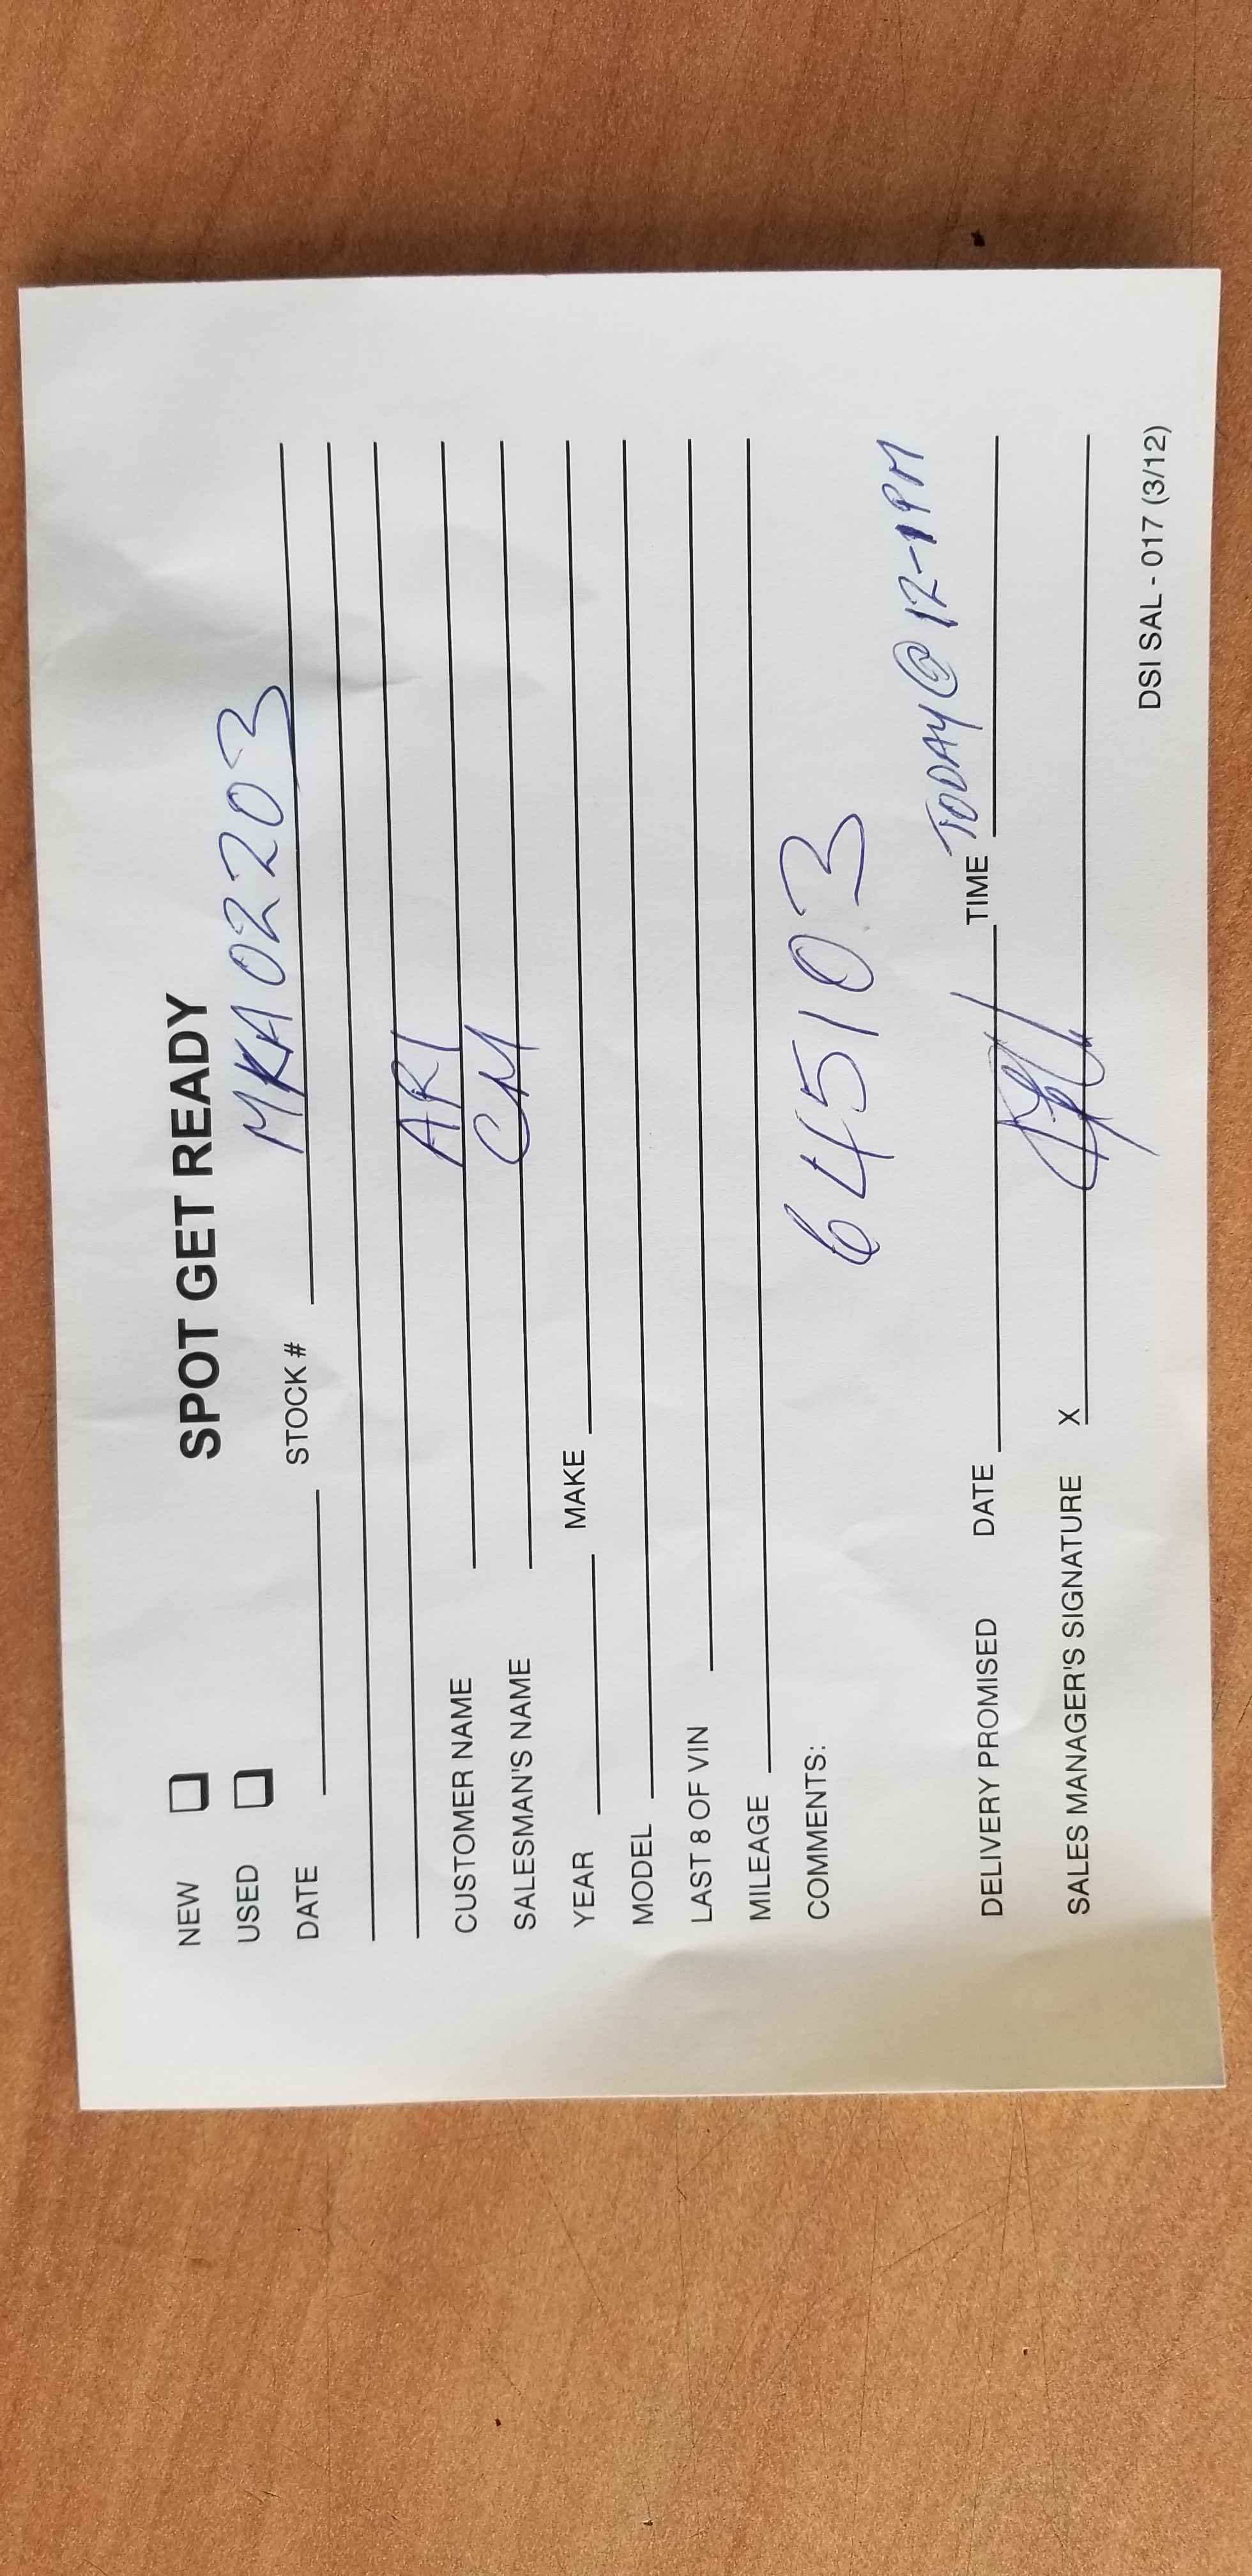 NEW
SPOT GET READY
USED
DATE STOCK # MKA02203
CUSTOMER NAME ARI
SALESMAN'S NAME CM
YEAR MAKE
MODEL
LAST 8 OF VIN
MILEAGE
COMMENTS: 645103
DELIVERY PROMISED DATE TIME TODAY @ 12-1PM
SALES MANAGER'S SIGNATURE X
DSI SAL - 017 (3/12)